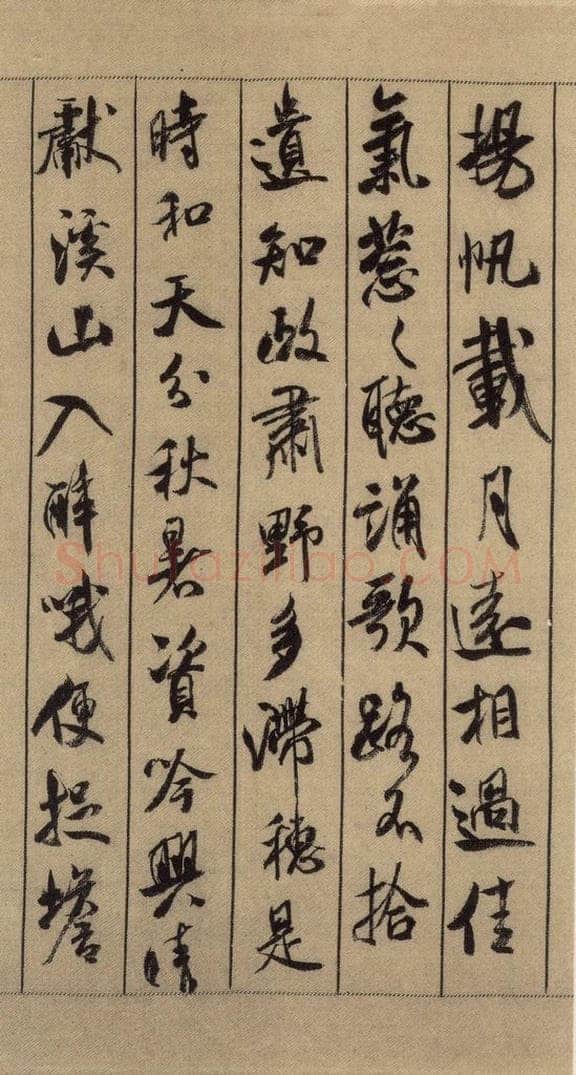 揚帆載月遠相過佳
氣葱〻聽誦歌路不拾
遺知政肅野多滯穗是
時和天分秋暑資吟興晴
獻溪山入醉哦便捉蟾
ShufaZiliao.COM